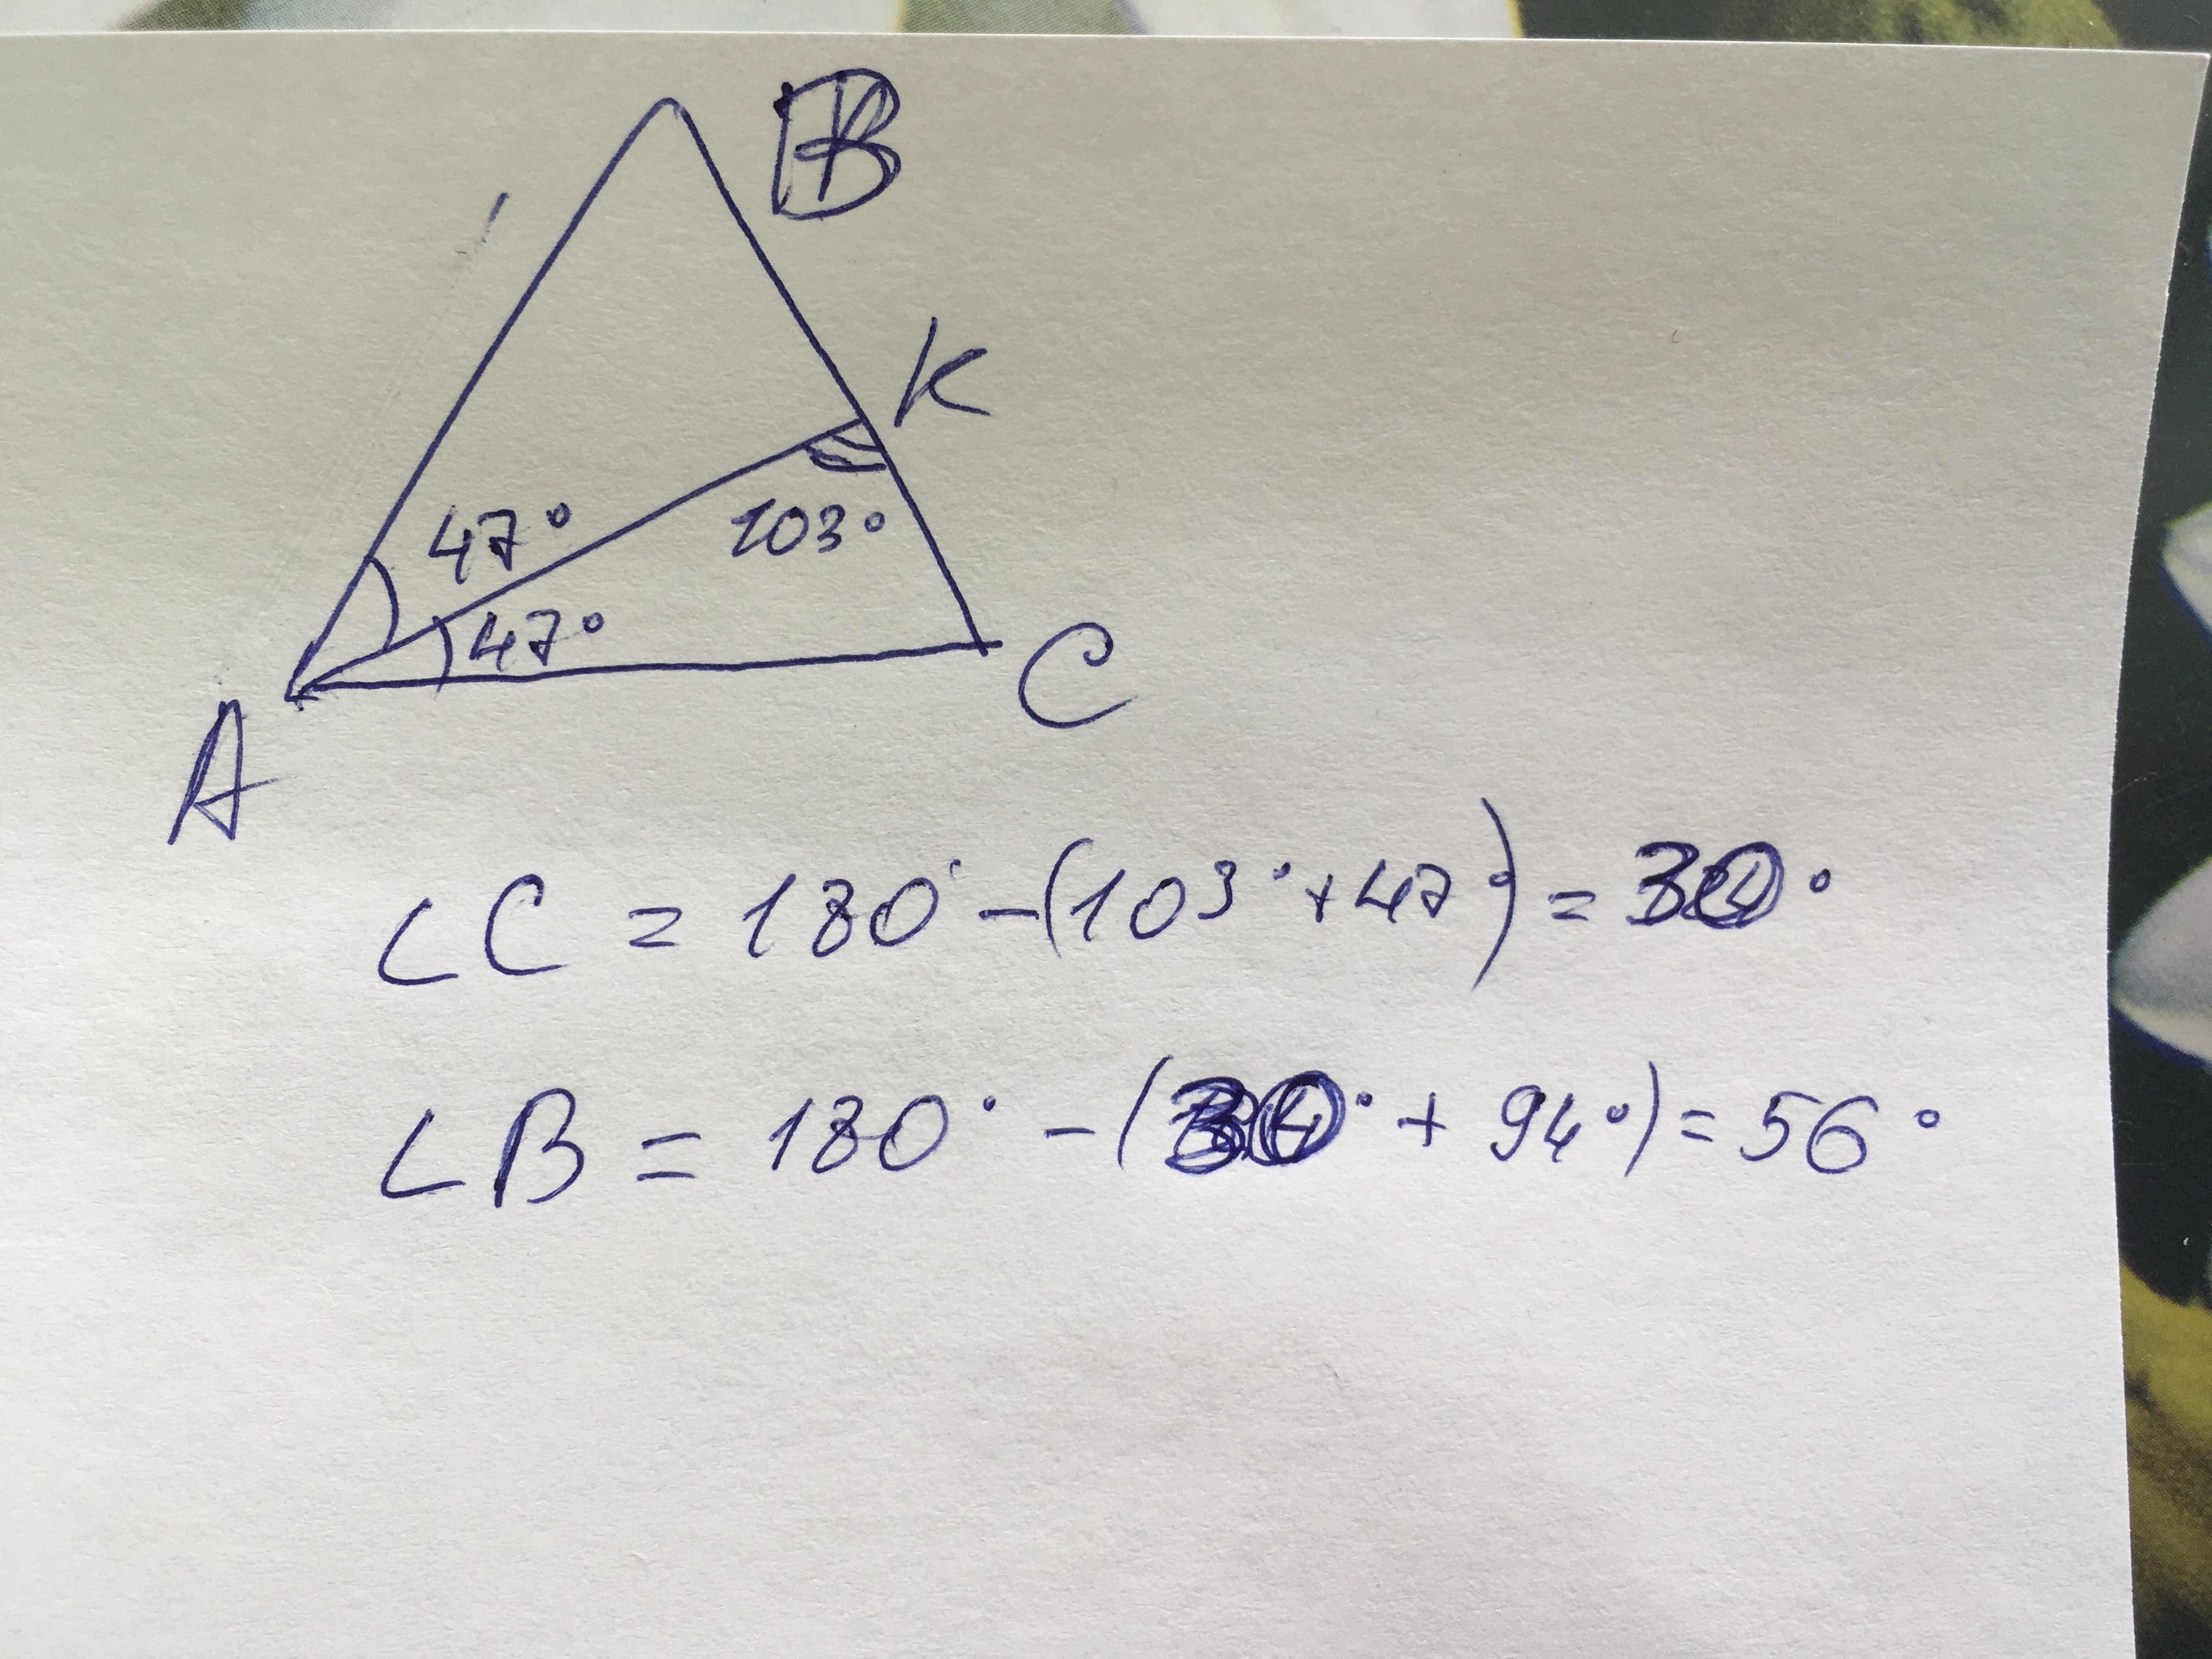 B
K
47°
103°
47°
C
A
∠C = 180° - (103° + 47°) = 30°
∠B = 180° - (30° + 94°) = 56°